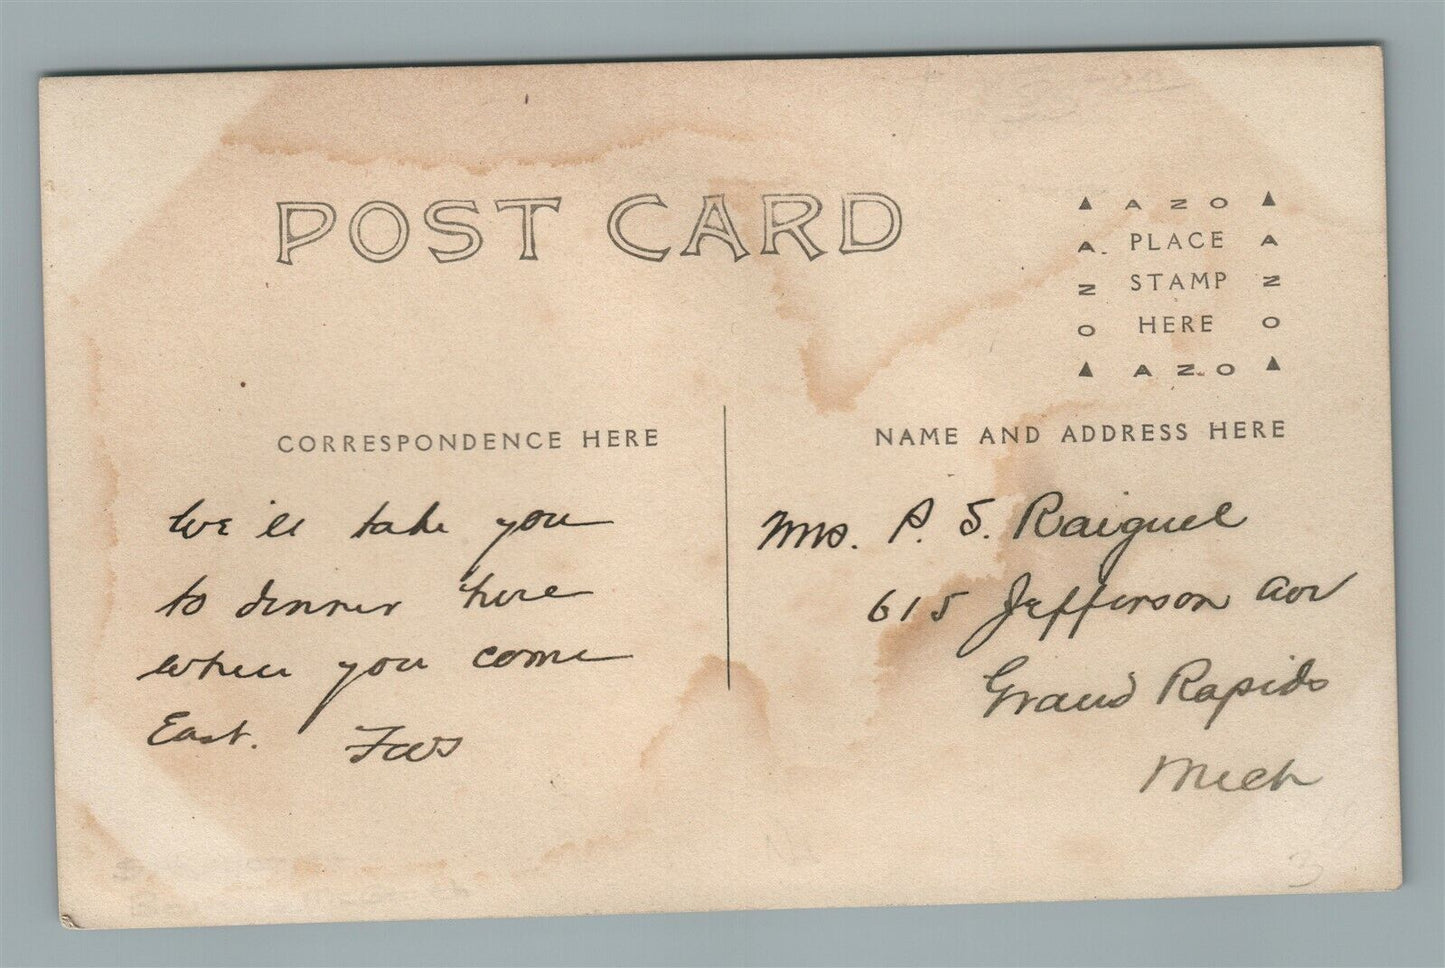 POST CARD
AZO
PLACE
STAMP
HERE
AZO
AZO
AZO
CORRESPONDENCE HERE
NAME AND ADDRESS HERE
We'll take you
to dinner here
when you come
East.
Mrs. P. S. Raiguel
615 Jefferson Ave
Grand Rapids
Mich